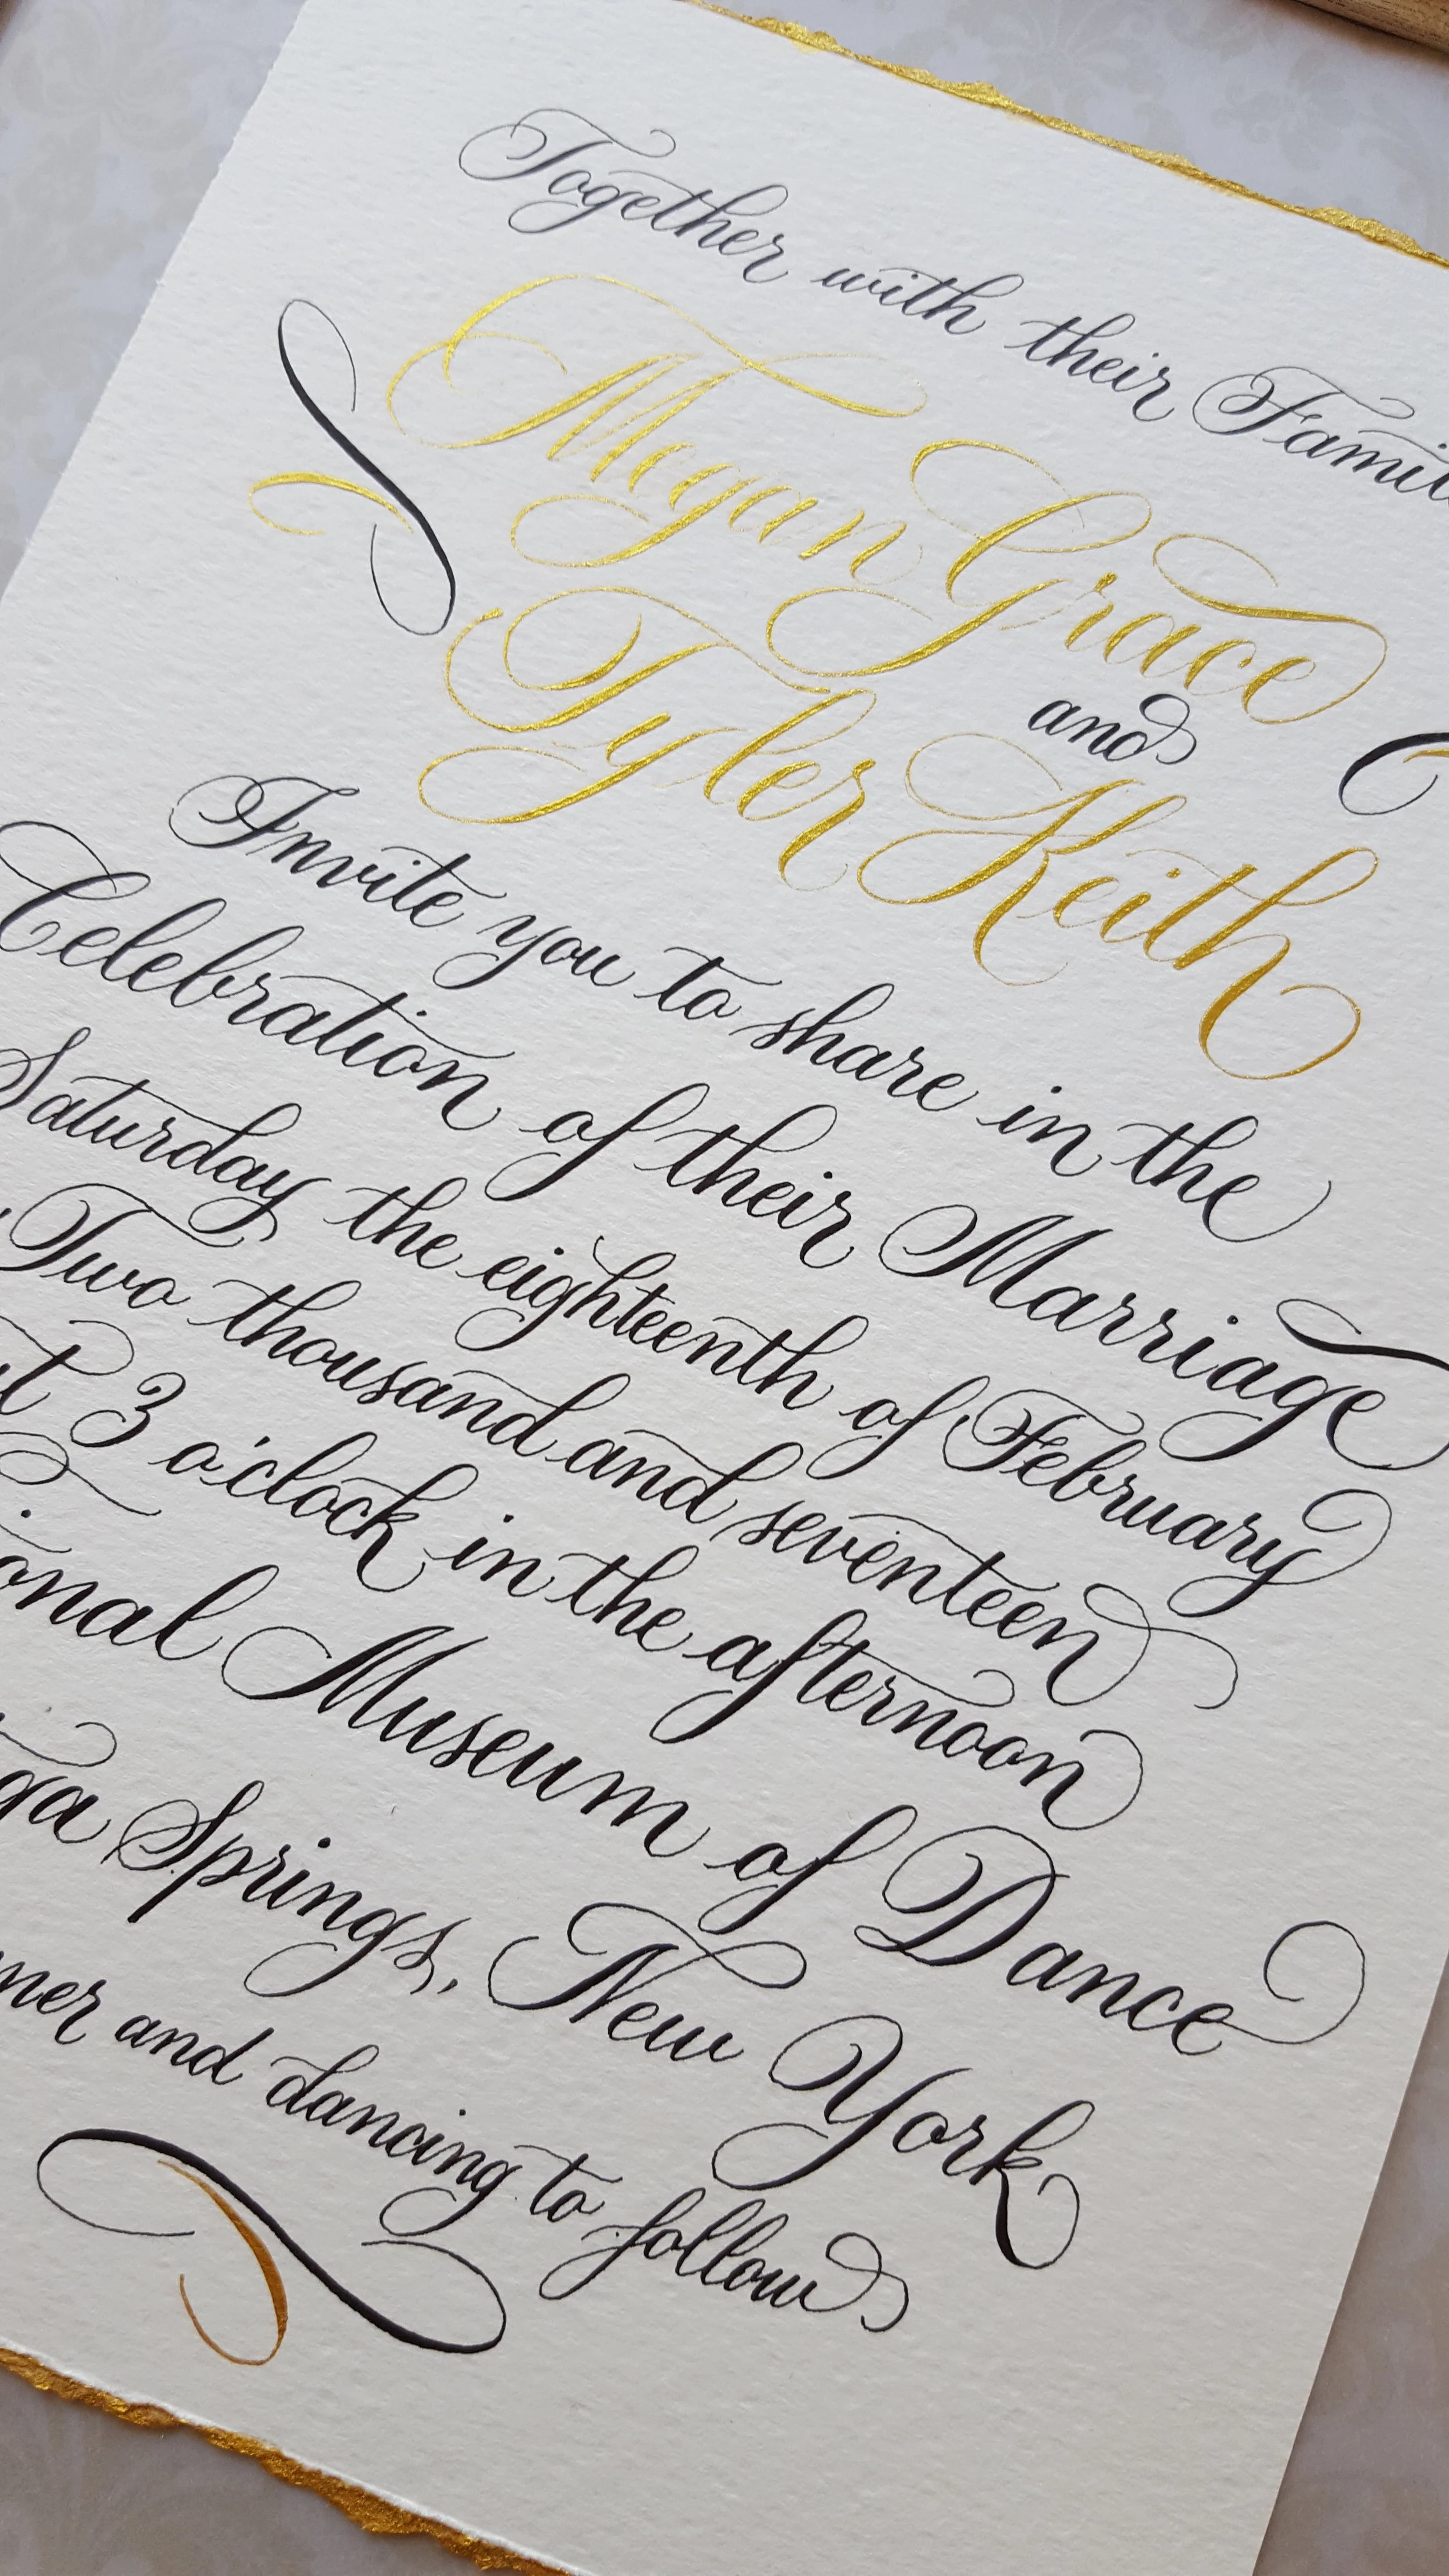 Together with their Famil
Megan Grace
and
Tyler Keith
Invite you to share in the
Celebration of their Marriage
Saturday the eighteenth of February
Two thousand and seventeen
at 3 o'clock in the afternoon
ional Museum of Dance
ga Springs, New York
ner and dancing to follow